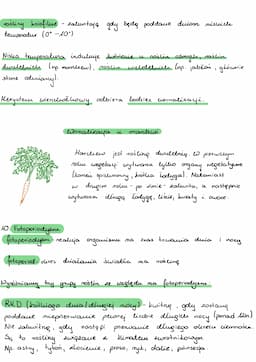 rośliny ozime - zakwitają gdy będą poddane działaniu niskich
temperatur (0° - 10°)
Niska temperatura indukuje kwitnienie u roślin ozimych, roślin
dwuletnich (np. marchew), roślin wieloletnich (np. jabłoń, głównie
stare odmiany).
Merystem wierzchołkowy odbiera bodziec wernalizacji.
Wernalizacja u marchwi
Marchew jest rośliną dwuletnią. W pierwszym
roku wegetacji wytwarza tylko organy wegetatywne
(korzeń spichrzowy, krótka łodyga). Natomiast
w drugim roku - po zimie - zakwita, a następnie
wytwarza długą łodygę, liście, kwiaty i owoce.
Fotoperiodyzm
fotoperiodyzm reakcja organizmu na czas trwania dnia i nocy
fotoperiod okres działania światła na roślinę
Wyróżniamy trzy grupy roślin ze względu na fotoperiodyzm
RKD (krótkiego dnia/długiej nocy) - kwitną, gdy zostaną
poddane nieprzerwanie pewnej liczbie długich nocy
Nie zakwitną, gdy nastąpi przerwanie długiego okresu ciemności.
Są to rośliny związane z klimatem zwrotnikowym.
Np. astry, tytoń, złocienie, proso, ryż, dalie,